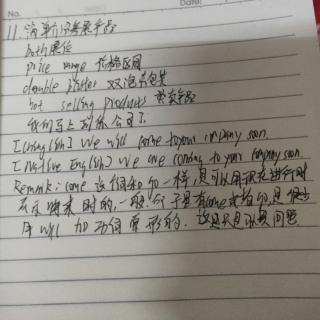 No. Date:
11.
both 展位
price range 价格区间
double blister 双泡壳包装
hot selling products 热卖产品
我们马上到你公司了
[Chinglish] We will come to your company soon.
[Native English] We are coming to your company soon.
Remark: come 这个词和 go 一样,是可以用现在进行时
表示将来时的,一般句子里有come或者go,是很少
用 will 加动词原形的.这是